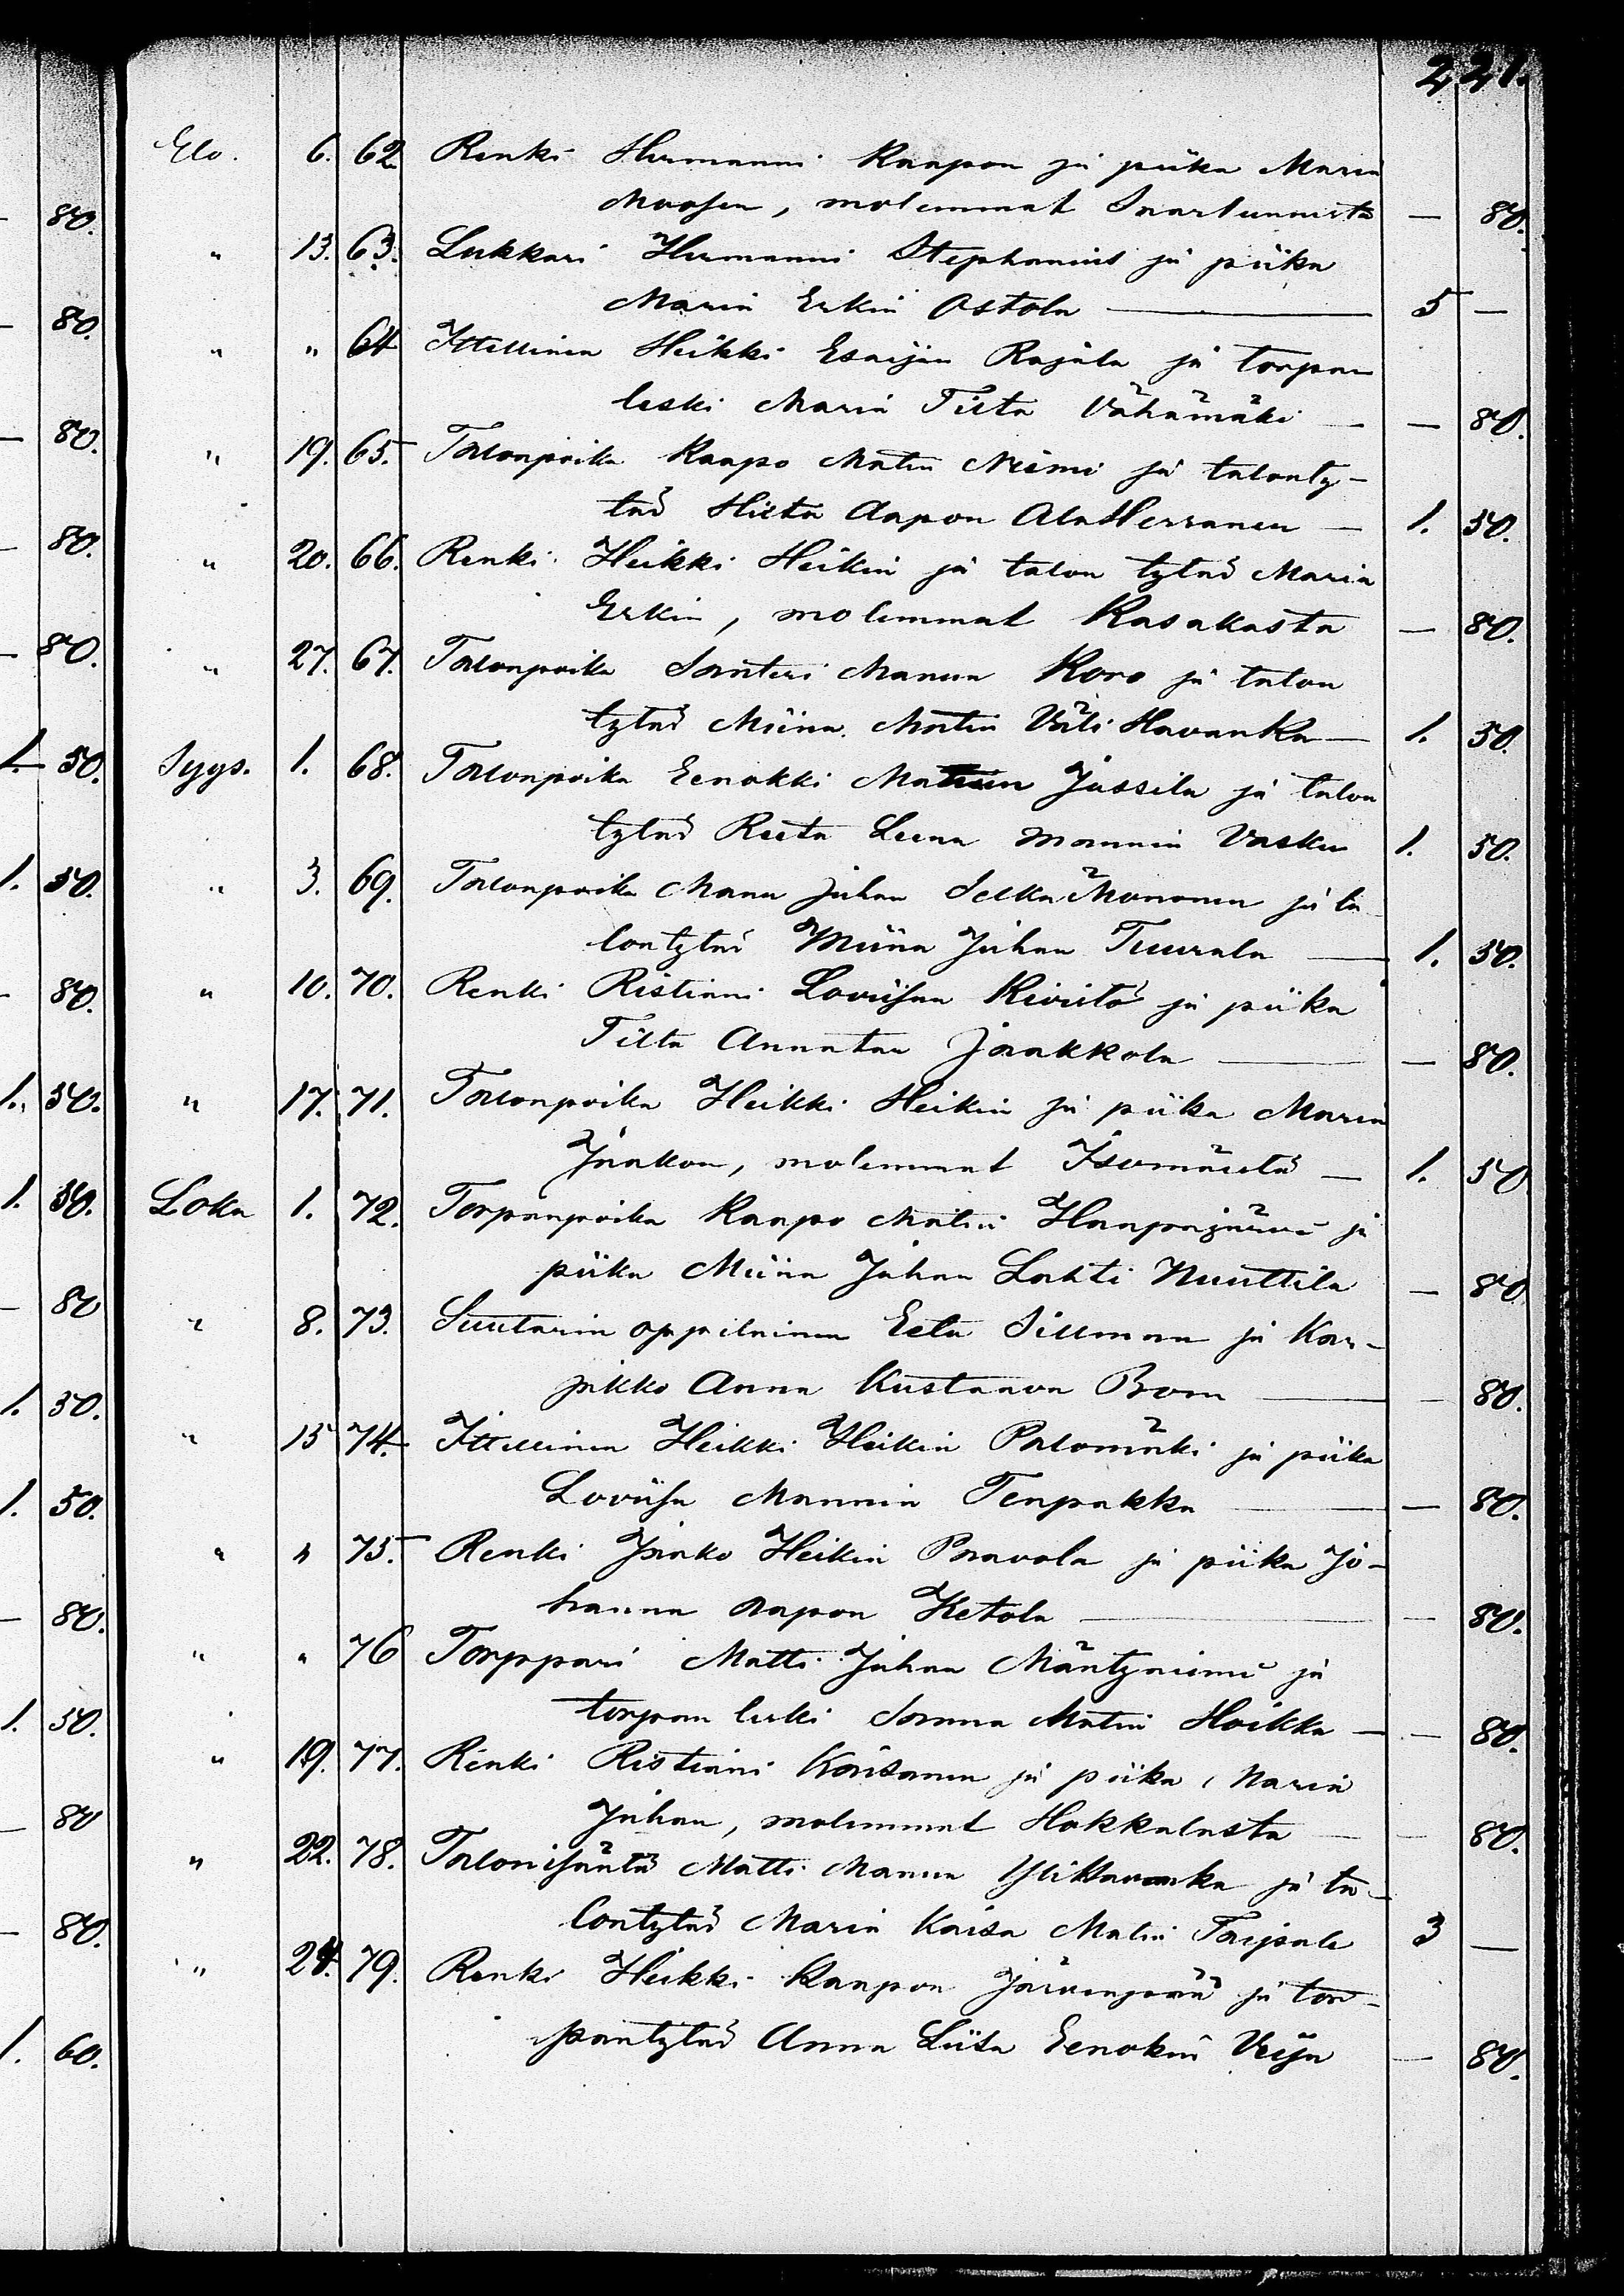 221.
Elo. 6. 62 Renki Hermanni Kaapon ja piika Maria
Moosen, molemmat Inarlunnista — 80.
" 13. 63. Lukkari Hermanni Stephanius ja piika
Maria Erkin Ostola — 5 —
" " 64 Ittellinen Heikki Esaijan Rajala ja torpan
leski Maria Tiita Vähämäki — — 80.
" 19. 65. Talonpoika Kaapo Matin Niemi ja talonty-
tär Hilta Aapon AlaHerranen — 1. 50.
" 20. 66. Renki Heikki Heikin ja talon tytär Maria
Erkin, molemmat Kasakasta — 80.
" 27. 67. Talonpoika Santeri Manun Koro ja talon
tytär Miina Matin Väli Havanka — 1. 50.
Syys. 1. 68. Talonpoika Eenokki Matin Jussila ja talon
tytär Reeta Leena Mannin Vasku 1. 50.
" 3. 69. Talonpoika Manu Juhan Selkämononen ja ta
lontytär Miina Juhan Tuurala — 1. 50.
" 10. 70. Renki Ristiani Loviisan Kiviitö ja piika
Tilta Annatan Jaakkola — — 80.
" 17. 71. Talonpoika Heikki Heikin ja piika Maria
Jaakon, molemmat Isomäeltä — 1. 50
Loka 1. 72. Torpanpoika Kaapo Matin Haapajärvi ja
piika Miina Juhan Lahti Nuuttila — 80
" 8. 73. Suutarin oppilainen Eetu Sillman ja Kar-
jakko Anna Kustaava Brom — — 80.
" 15 74. Ittellinen Heikki Heikin Palomäki ja piika
Loviisa Mannin Tenpakka — — 80.
" " 75. Renki Jaako Heikin Paavola ja piika Jo-
hanna Aapon Ketola — — 80.
" " 76 Torppari Matti Juhan Mäntyniemi ja
torpan leski Sanna Matin Hoikka — — 80.
" 19. 77. Renki Ristiani Kaisanen ja piika Maria
Juhan, molemmat Hakkalasta — — 80.
" 22. 78. Talonisäntä Matti Manun YliHavanka ja ta-
lontytär Maria Kaisa Matin Taipale 3 —
" 24. 79. Renki Heikki Kaapon Järvenpää ja tor-
pantytär Anna Liisa Eenokin Veija — 80.
80.
80.
80.
80.
80.
1. 50.
1. 50.
80.
1. 50.
1. 50.
80
1. 50.
1. 50.
80.
1. 50.
80
80.
1. 60.